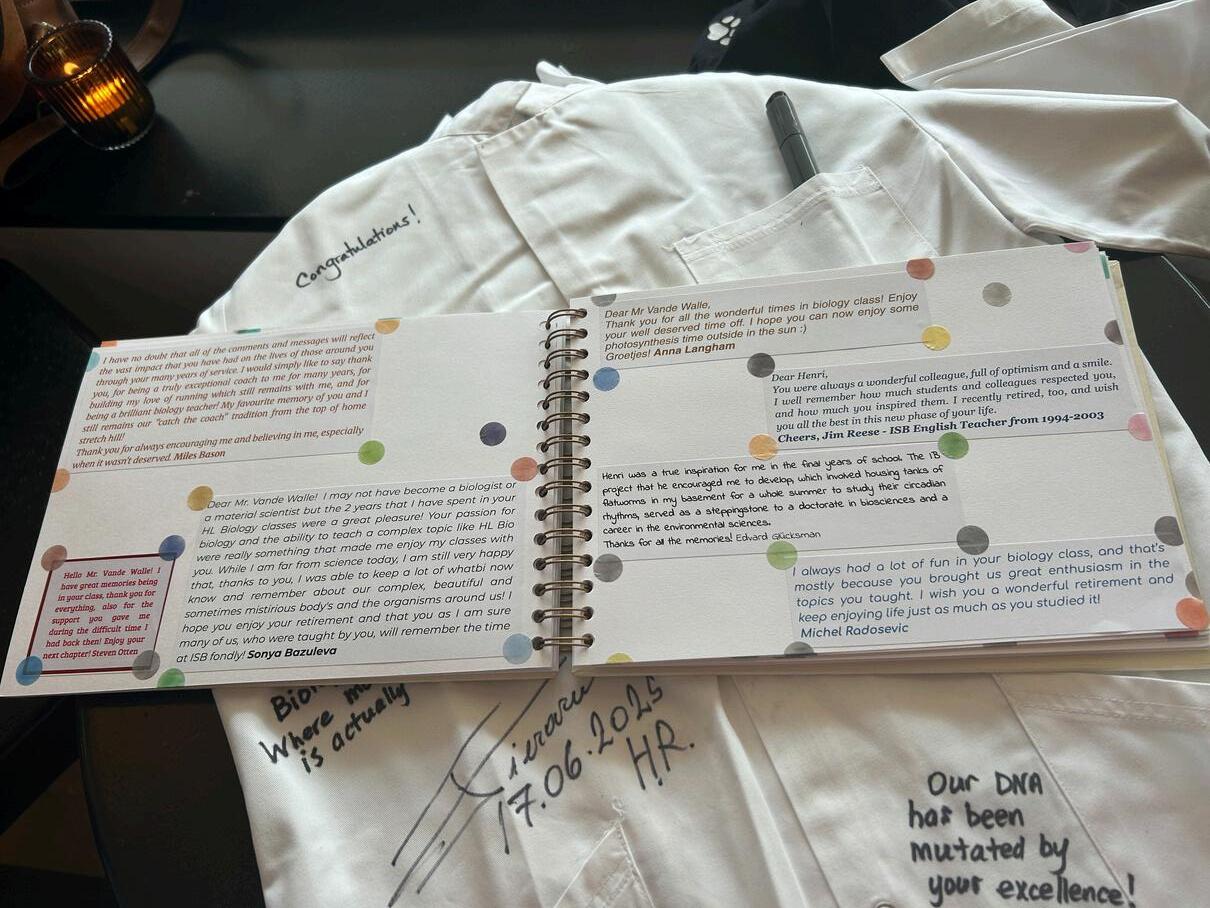 Congratulations!
I have no doubt that all of the comments and messages will reflect
the vast impact that you have had on the lives of those around you
through your many years of service. I would simply like to say thank
you, for being a truly exceptional coach to me for many years, for
building my love of running which still remains with me, and for
being a brilliant biology teacher! My favourite memory of you and I
still remains our "catch the coach" tradition from the top of home
stretch hill!
Thank you for always encouraging me and believing in me, especially
when it wasn't deserved. Miles Bason
Dear Mr. Vande Walle! I may not have become a biologist or
a material scientist but the 2 years that I have spent in your
HL Biology classes were a great pleasure! Your passion for
biology and the ability to teach a complex topic like HL Bio
were really something that made me enjoy my classes with
you. While I am far from science today, I am still very happy
that, thanks to you, I was able to keep a lot of whatbi now
know and remember about our complex, beautiful and
sometimes mistirious body's and the organisms around us! I
hope you enjoy your retirement and that you as I am sure
many of us, who were taught by you, will remember the time
at ISB fondly! Sonya Bazuleva
Hello Mr. Vande Walle! I
have great memories being
in your class, thank you for
everything, also for the
support you gave me
during the difficult time I
had back then! Enjoy your
next chapter! Steven Otten
Dear Mr Vande Walle,
Thank you for all the wonderful times in biology class! Enjoy
your well deserved time off. I hope you can now enjoy some
photosynthesis time outside in the sun :)
Groetjes! Anna Langham
Dear Henri,
You were always a wonderful colleague, full of optimism and a smile.
I well remember how much students and colleagues respected you,
and how much you inspired them. I recently retired, too, and wish
you all the best in this new phase of your life.
Cheers, Jim Reese - ISB English Teacher from 1994-2003
Henri was a true inspiration for me in the final years of school. The IB
project that he encouraged me to develop, which involved housing tanks of
flatworms in my basement for a whole summer to study their circadian
rhythms, served as a steppingstone to a doctorate in biosciences and a
career in the environmental sciences.
Thanks for all the memories! Edvard Glücksman
I always had a lot of fun in your biology class, and that's
mostly because you brought us great enthusiasm in the
topics you taught. I wish you a wonderful retirement and
keep enjoying life just as much as you studied it!
Michel Radosevic
Where
is actually
17.06.2025
H.R.
Our DNA
has been
mutated by
your excellence!